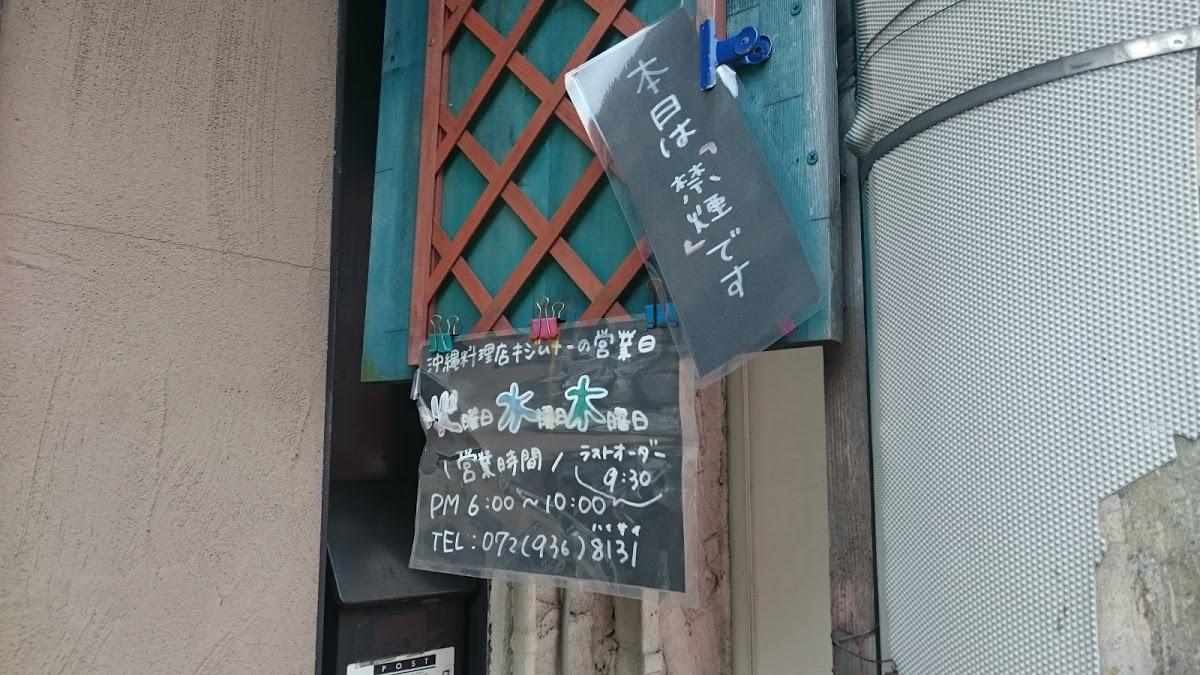 本日は「禁煙」です
沖縄料理店キジムナーの営業日
火曜日 水曜日 木曜日
営業時間 ラストオーダー
9:30
PM 6:00～10:00
ハイサイ
TEL:072(936)8131
POST